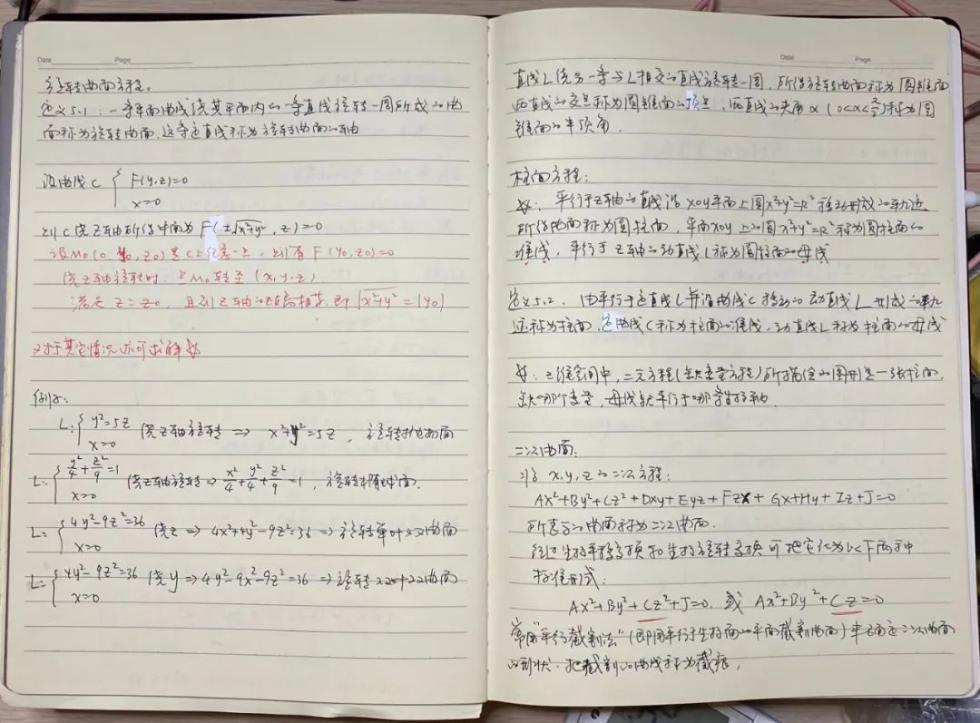 Date Page
旋转曲面方程。
定义5.1：一条平面曲线绕其平面内的一条直线旋转一周所成的曲
面称为旋转曲面，这条定直线称为旋转曲面的轴
设曲线C { F(y,z)=0
x=0
则C绕z轴所得曲面为 F(±√x²+y², z)=0
设M₀(0, y₀, z₀)是C上任意一点，则有 F(y₀,z₀)=0
绕z轴旋转时，点M₀转至(x,y,z)
满足 z=z₀，且到z轴的距离相等，即√x²+y²=|y₀|
对于其它情况亦可求解
例如：
L:{ y²=5z 绕z轴旋转 ⇒ x²+y²=5z，旋转抛物面
x=0
L:{ y²/4+z²/9=1 绕z轴旋转⇒ x²/4+y²/4+z²/9=1，旋转椭球面
x=0
L:{ 4y²-9z²=36 绕z ⇒ 4x²+4y²-9z²=36 ⇒ 旋转单叶双曲面
x=0
L:{ 4y²-9z²=36 绕y ⇒ 4y²-9x²-9z²=36 ⇒ 旋转双叶双曲面
x=0
Date Page
直线L绕另一条与L相交的直线旋转一周，所得旋转曲面称为圆锥面
两直线的交点称为圆锥面的顶点，两直线的夹角α(0<α<π/2)称为圆
锥面的半顶角.
柱面方程：
平行于z轴的直线沿xoy平面上圆x²+y²=R²移动形成的轨迹
所得曲面称为圆柱面，平面xoy上的圆x²+y²=R²称为圆柱面的
准线，平行于z轴的动直线L称为圆柱面的母线
定义5.2. 由平行于定直线L并沿曲线C移动的动直线L形成的轨
迹称为柱面，定曲线C称为柱面的准线，动直线L称为柱面的母线
三维空间中，二元方程(缺变量方程)所描绘的图形是一张柱面，
缺哪个变量，母线就平行于哪条坐标轴.
二次曲面.
x,y,z的二次方程：
Ax²+By²+Cz²+Dxy+Eyz+Fzx+Gx+Hy+Iz+J=0
所表示的曲面称为二次曲面.
经过坐标平移变换和坐标旋转变换可把它化为以下两种
标准形式：
Ax²+By²+Cz²+J=0. 或 Ax²+By²+Cz=0
常用"平行截割法"(即用平行于坐标面的平面截割曲面)来确定二次曲面
的形状. 把截割的曲线称为截痕.